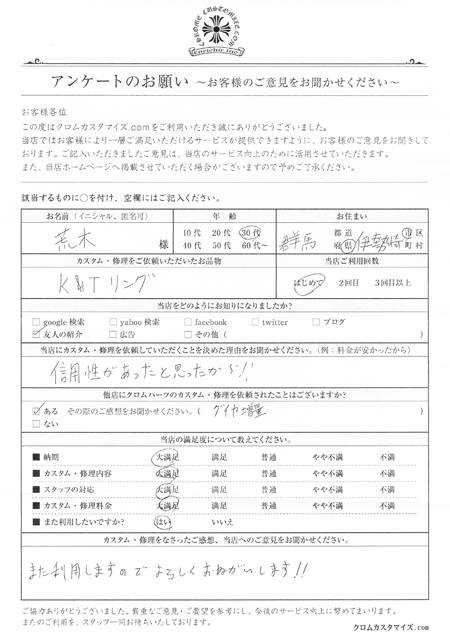 CHROME CUSTOMIZE.COM
Enrichir.inc
アンケートのお願い ～お客様のご意見をお聞かせください～
お客様各位
この度はクロムカスタマイズ.comをご利用いただき誠にありがとうございました。
当店ではお客様により一層ご満足いただけるサービスが提供できますように、お客様のご意見をお聞きして
おります。ご記入いただきましたご意見は、当店のサービス向上のために活用させていただきます。
また、当店ホームページへ掲載させていただく場合がございますので予めご了承ください。
該当するものに○を付け、空欄にはご記入ください。
お名前（イニシャル、匿名可） 年 齢 お住まい
荒木 様 10代 20代 30代 40代 50代 60代～ 群馬 都道府県 伊勢崎 市区町村
カスタム・修理をご依頼いただいたお品物 当店ご利用回数
K&Tリング はじめて 2回目 3回目以上
当店をどのようにお知りになりましたか？
□ google 検索 □ yahoo 検索 □ facebook □ twitter □ ブログ
☑ 友人の紹介 □ 広告 □ その他（ ）
当店にカスタム・修理を依頼していただくことを決めた理由をお聞かせください。（例：料金が安かったから）
信用性があったと思ったから!!
他店にクロムハーツのカスタム・修理を依頼されたことはございますか？
☑ ある その際のご感想をお聞かせください。（ ダイヤ増量 ）
□ ない
当店の満足度について教えてください。
■ 納期 大満足 満足 普通 やや不満 不満
■ カスタム・修理内容 大満足 満足 普通 やや不満 不満
■ スタッフの対応 大満足 満足 普通 やや不満 不満
■ カスタム・修理料金 大満足 満足 普通 やや不満 不満
■ また利用したいですか？ はい いいえ
カスタム・修理をなさったご感想、当店へのご意見をお聞かせください。
また利用しますのでよろしくおねがいします!!
ご協力ありがとうございました。貴重なご意見・ご要望を参考にし、今後のサービス向上に努めてまいります。
またのご利用を、スタッフ一同お待ちいたしております。
クロムカスタマイズ.com